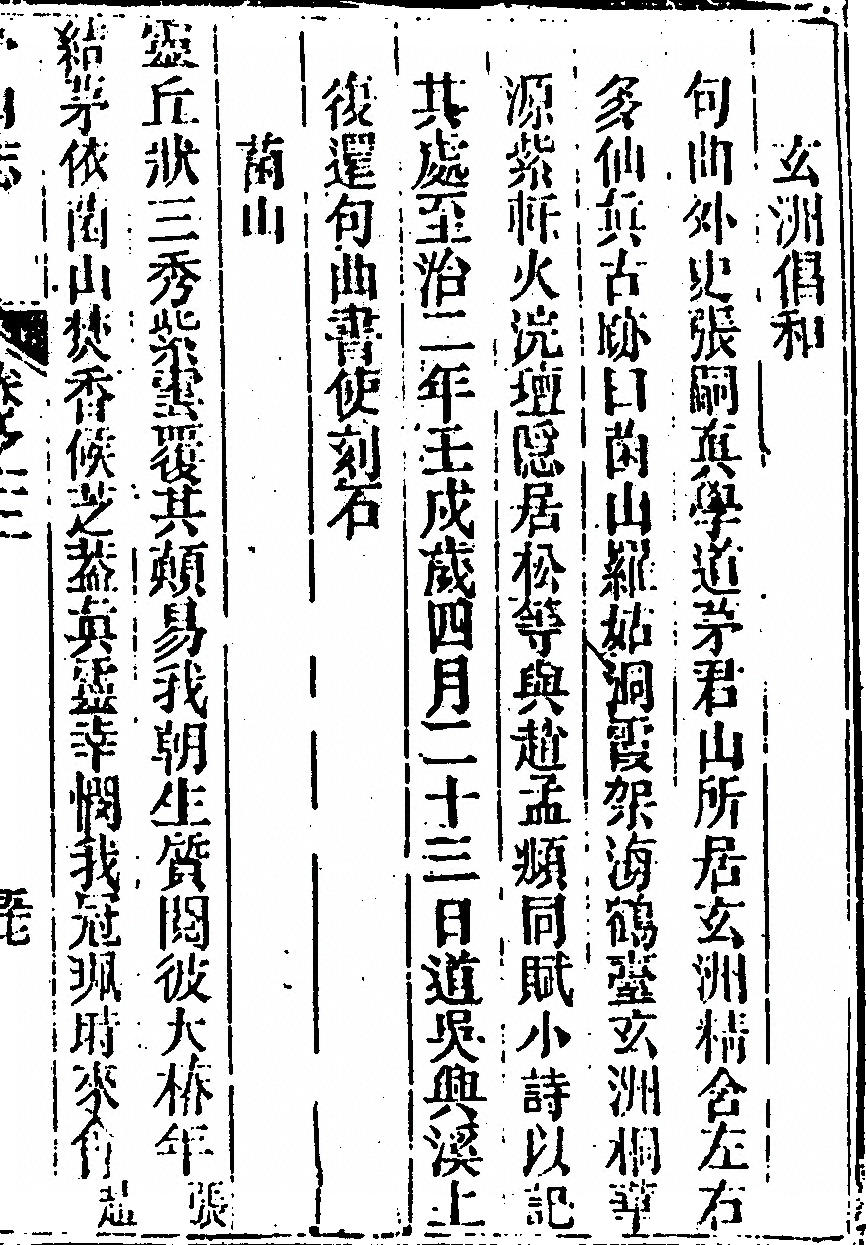 玄洲倡和
句曲外史張嗣真學道茅君山所居玄洲精舍左右
多仙真古跡曰菌山羅姑洞霞架海鶴臺玄洲桐華
源紫軒火浣壇隱居松等與趙孟頫同賦小詩以記
其處至治二年壬戌歲四月二十三日道吳興溪上
復還句曲書使刻石
菌山
靈丘狀三秀紫雲覆其顛易我朝生質閱彼大椿年張
結茅依菌山焚香候芝葢真靈幸憫我冠珮時來會趙
山志